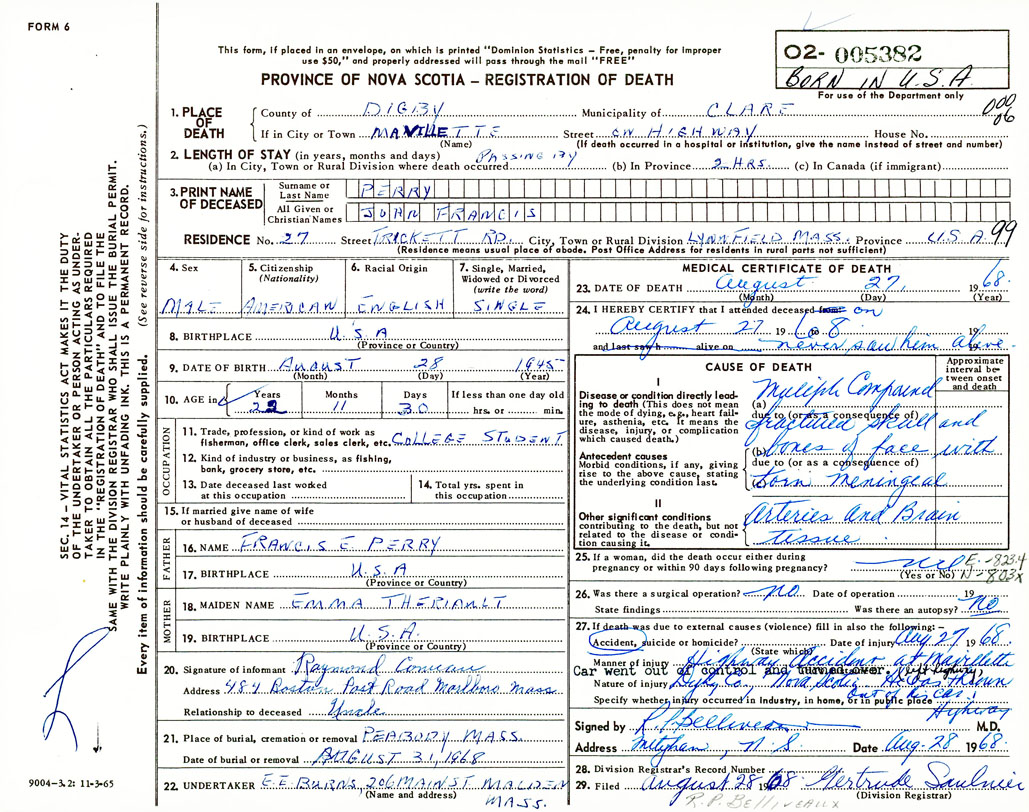 FORM 6
This form, if placed in an envelope, on which is printed "Dominion Statistics – Free, penalty for improper
use $50," and properly addressed will pass through the mail "FREE"
PROVINCE OF NOVA SCOTIA – REGISTRATION OF DEATH
02- 005382
BORN IN U.S.A
For use of the Department only
000
06
SEC. 14 – VITAL STATISTICS ACT MAKES IT THE DUTY
OF THE UNDERTAKER OR PERSON ACTING AS UNDER-
TAKER TO OBTAIN ALL THE PARTICULARS REQUIRED
IN THE "REGISTRATION OF DEATH" AND TO FILE THE
SAME WITH THE DIVISION REGISTRAR WHO SHALL ISSUE THE BURIAL PERMIT.
WRITE PLAINLY WITH UNFADING INK. THIS IS A PERMANENT RECORD.
Every item of information should be carefully supplied. (See reverse side for instructions.)
1. PLACE OF DEATH County of DIGBY Municipality of CLARE
If in City or Town MAVILLETTE Street ON HIGHWAY House No.
(Name) (If death occurred in a hospital or institution, give the name instead of street and number)
2. LENGTH OF STAY (in years, months and days)
(a) In City, Town or Rural Division where death occurred PASSING BY (b) In Province 2 HRS. (c) In Canada (if immigrant)
3. PRINT NAME OF DECEASED Surname or Last Name PERRY
All Given or Christian Names JOHN FRANCIS
RESIDENCE No. 27 Street TRICKETT RD. City, Town or Rural Division LYNNFIELD MASS. Province U.S.A. 99
(Residence means usual place of abode. Post Office Address for residents in rural parts not sufficient)
4. Sex MALE
5. Citizenship (Nationality) AMERICAN
6. Racial Origin ENGLISH
7. Single, Married, Widowed or Divorced (write the word) SINGLE
8. BIRTHPLACE U.S.A
(Province or Country)
9. DATE OF BIRTH AUGUST 28 1945
(Month) (Day) (Year)
10. AGE in Years 22 Months 11 Days 30 If less than one day old hrs. or min.
OCCUPATION
11. Trade, profession, or kind of work as fisherman, office clerk, sales clerk, etc. COLLEGE STUDENT
12. Kind of industry or business, as fishing, bank, grocery store, etc.
13. Date deceased last worked at this occupation
14. Total yrs. spent in this occupation
15. If married give name of wife or husband of deceased
FATHER
16. NAME FRANCIS E PERRY
17. BIRTHPLACE U.S.A
(Province or Country)
MOTHER
18. MAIDEN NAME EMMA THERIAULT
19. BIRTHPLACE U.S.A.
(Province or Country)
20. Signature of informant Raymond Comeau
Address 484 Boston Post Road Marlboro Mass.
Relationship to deceased Uncle
21. Place of burial, cremation or removal PEABODY MASS.
Date of burial or removal AUGUST 31, 1968
22. UNDERTAKER E.E BURNS, 206 MAIN ST MALDEN
(Name and address) MASS.
MEDICAL CERTIFICATE OF DEATH
23. DATE OF DEATH August 27, 1968.
(Month) (Day) (Year)
24. I HEREBY CERTIFY that I attended deceased from on
August 27 19 68 to 19
and last saw h alive on never saw him alive. 19
CAUSE OF DEATH
Approximate interval between onset and death
I
Disease or condition directly leading to death (This does not mean the mode of dying, e.g., heart failure, asthenia, etc. It means the disease, injury, or complication which caused death.)
(a) Multiple Compound
due to (or as a consequence of)
fractured skull and
Antecedent causes
Morbid conditions, if any, giving rise to the above cause, stating the underlying condition last.
(b) bones of face with
due to (or as a consequence of)
(c) torn meningeal
II
Other significant conditions contributing to the death, but not related to the disease or condition causing it.
Arteries and Brain
tissue
25. If a woman, did the death occur either during pregnancy or within 90 days following pregnancy?
(Yes or No)
E.-823.4
N-803x
26. Was there a surgical operation? NO. Date of operation 19
State findings Was there an autopsy? NO
27. If death was due to external causes (violence) fill in also the following: –
Accident, suicide or homicide? Date of injury Aug 27 1968.
(State which)
Manner of injury Highway Accident at Mavillette
Car went out of control and turned over, left highway
Nature of injury Digby Co., Nova Scotia. He was thrown
out of his car.
Specify whether injury occurred in industry, in home, or in public place Highway
Signed by R.P. Belliveau M.D.
Address Meteghan, N.S. Date Aug-28 1968.
28. Division Registrar's Record Number
29. Filed August 28 1968 Gertrude Saulnier
(Division Registrar)
R.P. BELLIVEAUX
9004–3.2: 11-3-65